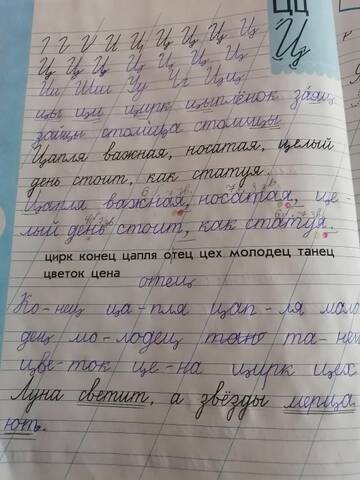 Ц ц
I I V И И Ц Ц Ц Ц Ц
Ц Ц Ц Ц Ц Ц Ц
Ци Цы Цу Це Цщ
цы ци цирк цыплёнок заяц
зайцы столица столицы
Цапля важная, носатая, целый
день стоит, как статуя.
6 б. 7 зв.
Цапля важная, носатая, це-
лый день стоит, как статуя.
цирк конец цапля отец цех молодец танец
цветок цена
отец
Ко-нец ца-пля цап-ля мало
дец мо-лодец тано та-нец
цве-ток це-на цирк цех
Луна светит, а звёзды мерца
ют.